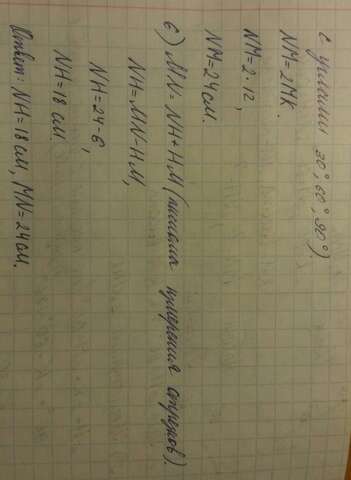 с углами 30°, 60°, 90°).
NM=2MK.
NM=2·12,
NM=24см.
6) MN=NH+HM (аксиома измерения отрезков).
NH=MN-HM,
NH=24-6,
NH=18 см.
Ответ: NH=18 см, MN=24см.